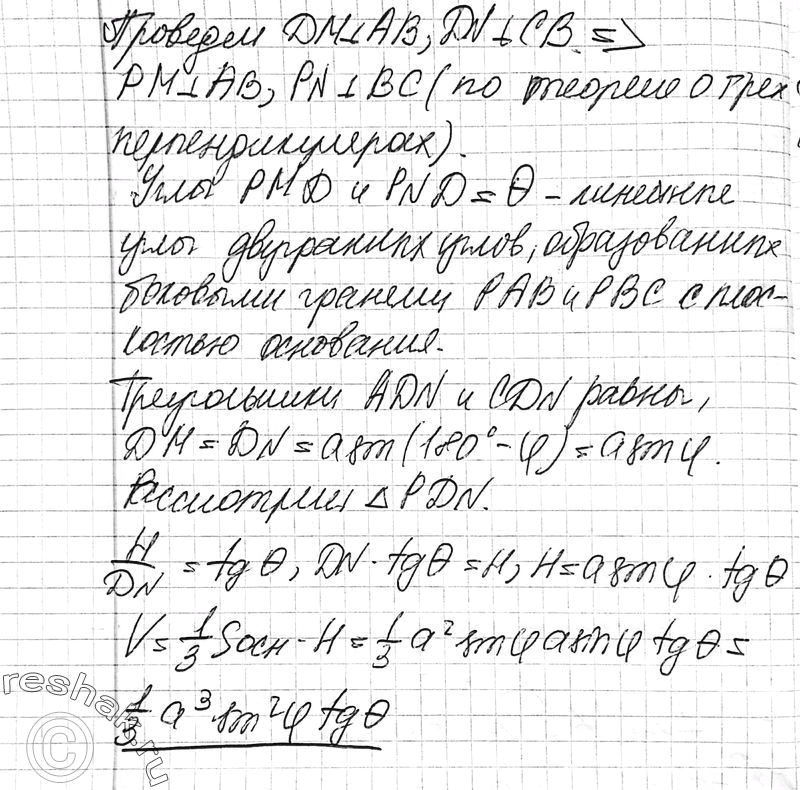 Проведем DM⊥AB, DN⊥CB =>
PM⊥AB, PN⊥BC (по теореме о трех
перпендикулярах).
Углы PMD и PND = θ - линейные
углы двугранных углов, образованных
боковыми гранями PAB и PBC с плос-
костью основания.
Треугольники ADN и CDN равны,
DM = DN = a sin(180° - φ) = a sin φ.
Рассмотрим △ PDN.
H/DN = tg θ, DN · tg θ = H, H = a sin φ · tg θ
V = 1/3 Sосн · H = 1/3 a² sin φ a sin φ tg θ =
1/3 · a³ · sin² φ tg θ
reshak.ru
©